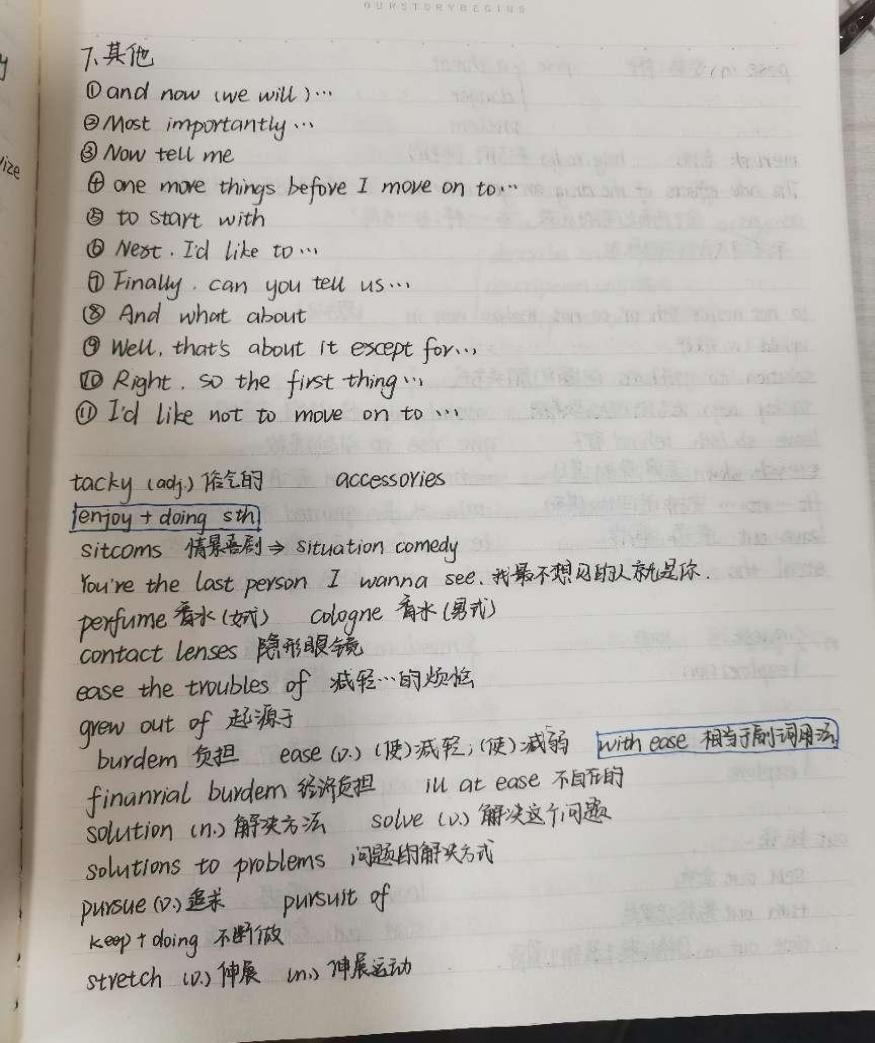 OURSTORYBEGINS
7、其他
① and now (we will)…
② Most importantly…
③ Now tell me
④ one more things before I move on to…
⑤ to start with
⑥ Next. I'd like to…
⑦ Finally. can you tell us…
⑧ And what about
⑨ Well, that's about it escept for…
⑩ Right. so the first thing…
⑪ I'd like not to move on to …
tacky (adj.) 俗气的 accessories
enjoy + doing sth
sitcoms 情景喜剧 → situation comedy
You're the last person I wanna see. 我最不想见的人就是你.
perfume 香水(女式) cologne 香水(男式)
contact lenses 隐形眼镜
ease the troubles of 减轻…的烦恼
grew out of 起源于
burdem 负担 ease (v.) (使)减轻;(使)减弱 with ease 相当于副词用法
finanrial burdem 经济负担 ill at ease 不自在的
solution (n.) 解决方法 solve (v.) 解决这个问题
solutions to problems 问题的解决方式
pursue (v.) 追求 pursuit of
keep + doing 不断做
stretch (v.) 伸展 (n.) 伸展运动